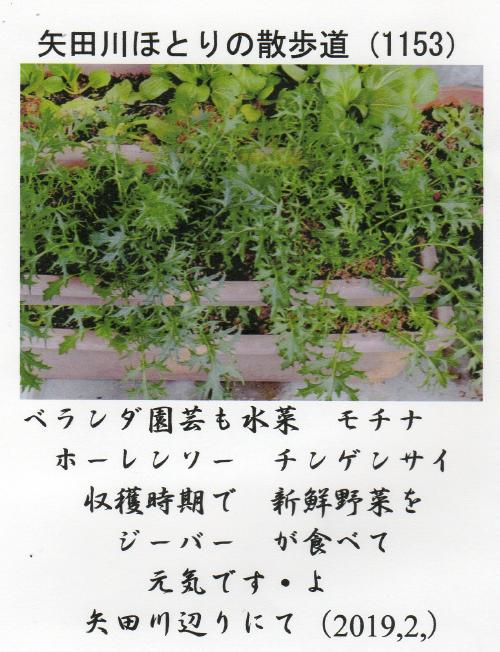 矢田川ほとりの散歩道（1153）
ベランダ園芸も水菜　モチナ
ホーレンソー　チンゲンサイ
収獲時期で　新鮮野菜を
ジーバー　が食べて
元気です・よ
矢田川辺りにて（2019,2,）